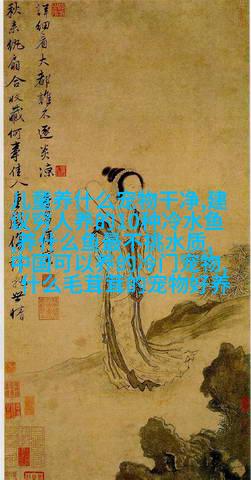 秋来紈扇合收藏何事佳人重感傷世情
詳細看大都誰不逐炎凉
儿童养什么宠物干净,建
议穷人养的10种冷水鱼
,养什么鱼最不挑水质,
中国可以养的冷门宠物,
什么毛茸茸的宠物好养